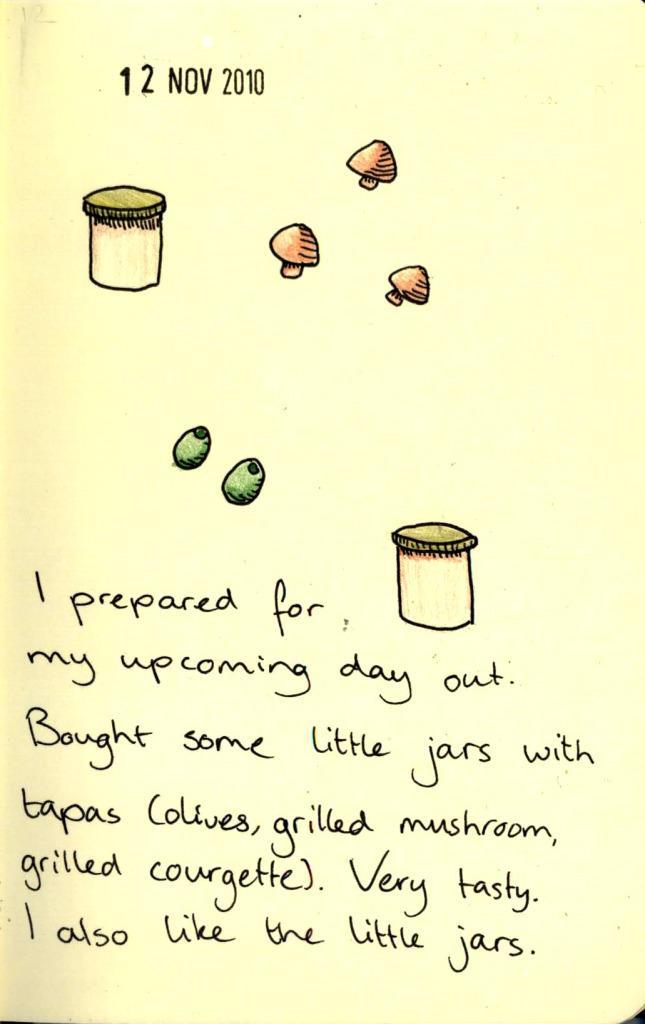 12 NOV 2010
I prepared for
my upcoming day out.
Bought some little jars with
tapas (olives, grilled mushroom,
grilled courgette). Very tasty.
I also like the little jars.